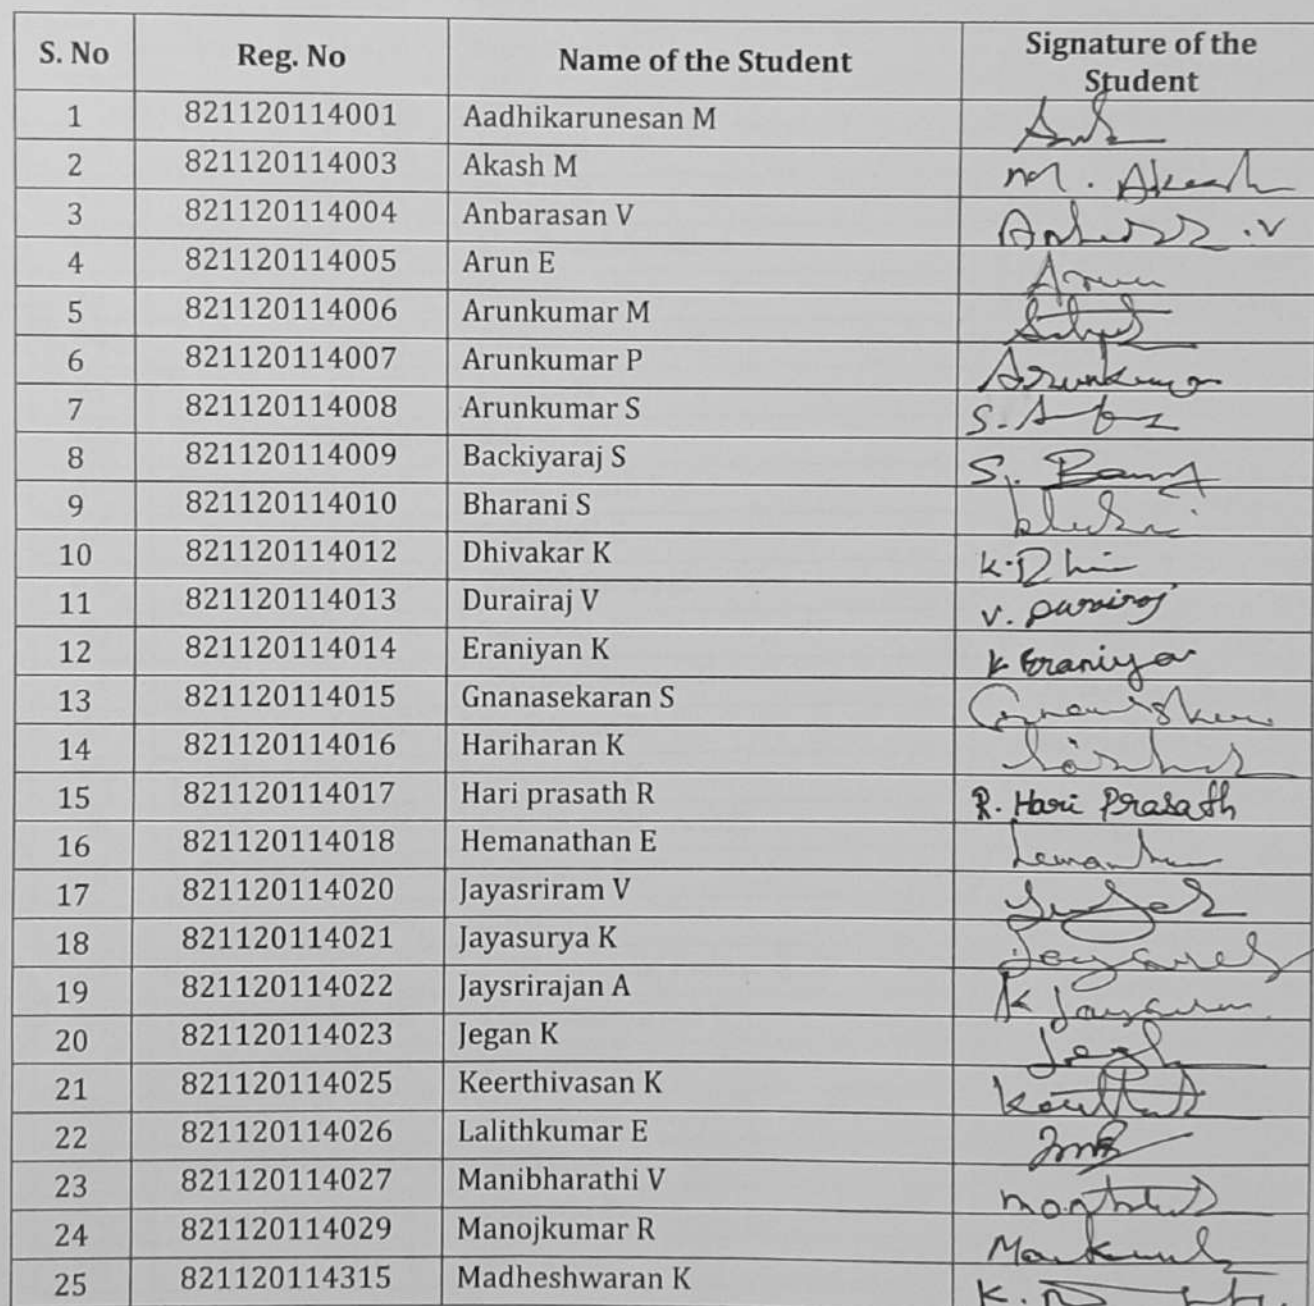 S. No Reg. No Name of the Student Signature of the
Student
1 821120114001 Aadhikarunesan M
2 821120114003 Akash M M. Akash
3 821120114004 Anbarasan V
4 821120114005 Arun E Arun
5 821120114006 Arunkumar M
6 821120114007 Arunkumar P Arunkumar
7 821120114008 Arunkumar S
8 821120114009 Backiyaraj S
9 821120114010 Bharani S
10 821120114012 Dhivakar K
11 821120114013 Durairaj V V. Durairaj
12 821120114014 Eraniyan K
13 821120114015 Gnanasekaran S
14 821120114016 Hariharan K
15 821120114017 Hari prasath R R. Hari Prasath
16 821120114018 Hemanathan E
17 821120114020 Jayasriram V
18 821120114021 Jayasurya K
19 821120114022 Jaysrirajan A
20 821120114023 Jegan K
21 821120114025 Keerthivasan K
22 821120114026 Lalithkumar E
23 821120114027 Manibharathi V
24 821120114029 Manojkumar R
25 821120114315 Madheshwaran K